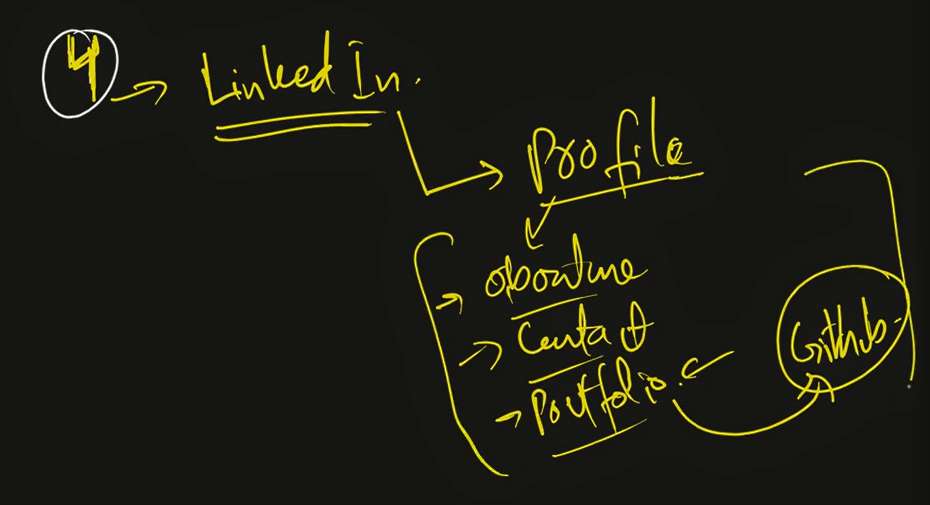 4 → LinkedIn.
Profile
→ aboutme
→ Contact
→ Portfolio.
Github